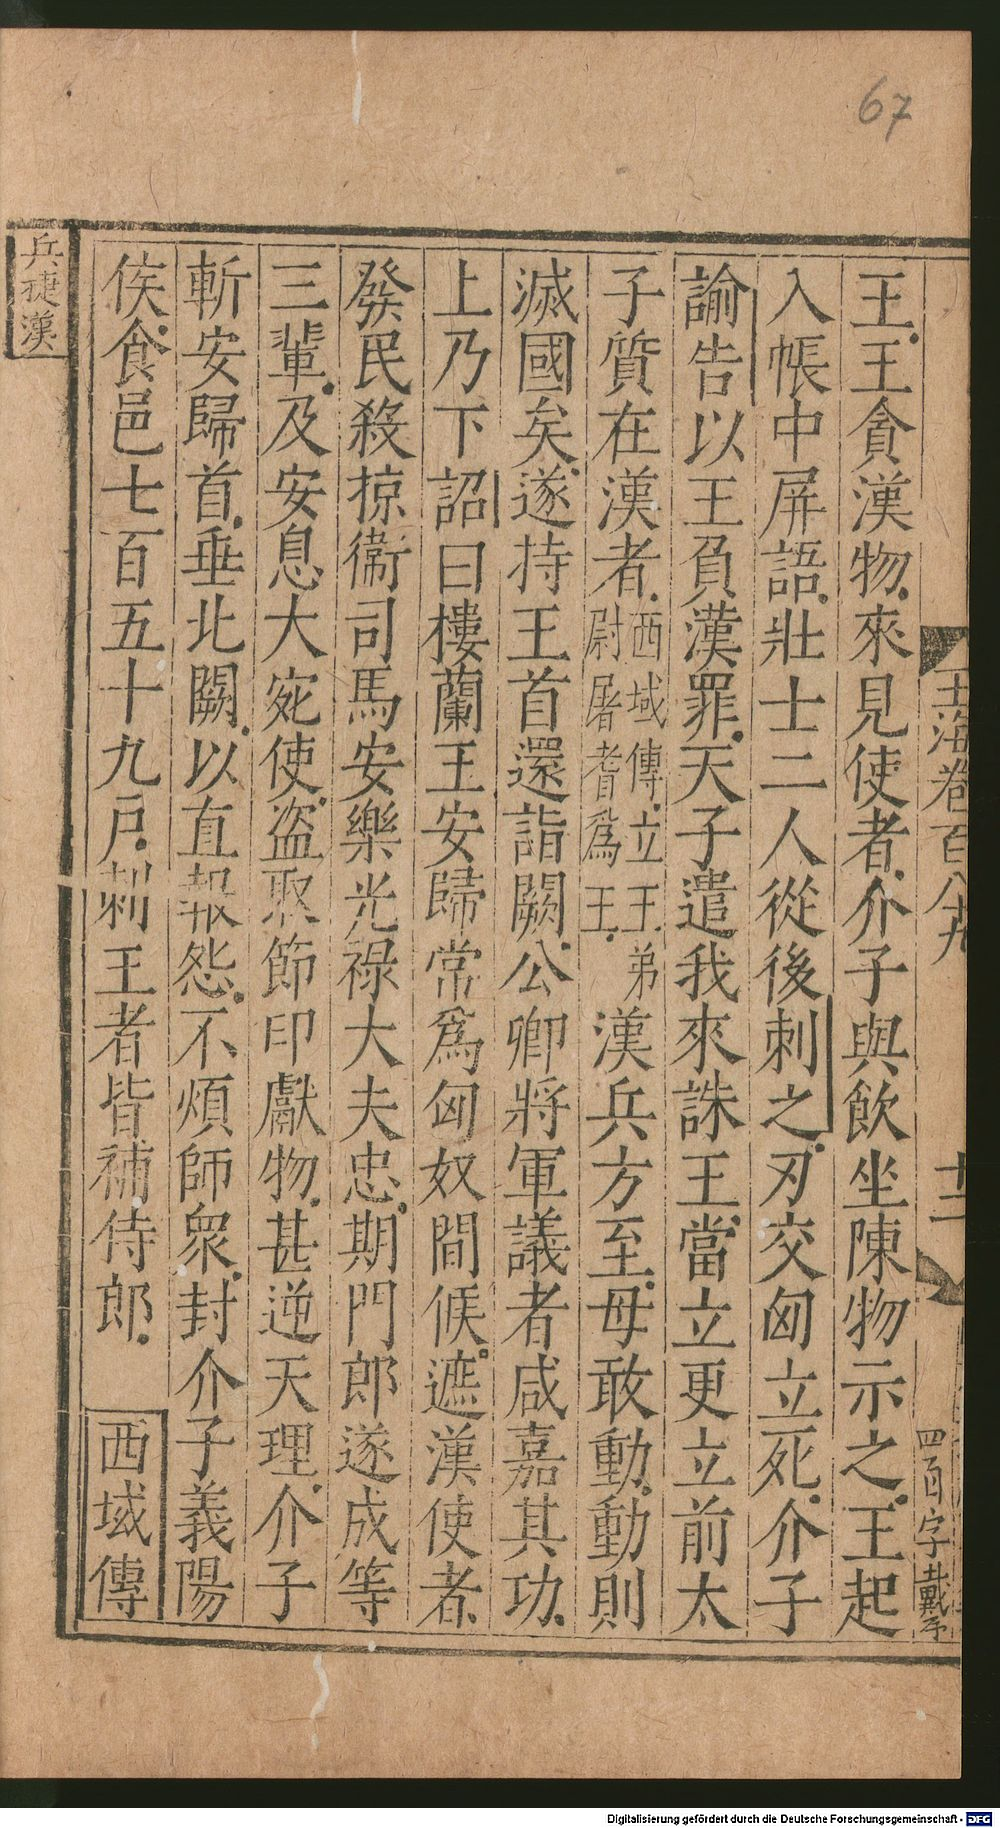 67
玉海卷百八九
十二
四百字
王王貪漢物來見使者介子與飮坐陳物示之王起
入帳中屏語壯士二人從後刺之刃交匈立死介子
諭告以王負漢罪天子遣我來誅王當立更立前太
子質在漢者西域傳立王弟尉屠耆爲王漢兵方至毋敢動動則
滅國矣遂持王首還詣闕公卿將軍議者咸嘉其功
上乃下詔曰樓蘭王安歸常爲匈奴間候遮漢使者
發民殺掠衞司馬安樂光祿大夫忠期門郎遂成等
三輩及安息大宛使盜取節印獻物甚逆天理介子
斬安歸首垂北闕以直報怨不煩師衆封介子義陽
侯食邑七百五十九戶刺王者皆補侍郎 西域傳
兵捷漢
Digitalisierung gefördert durch die Deutsche Forschungsgemeinschaft - DFG